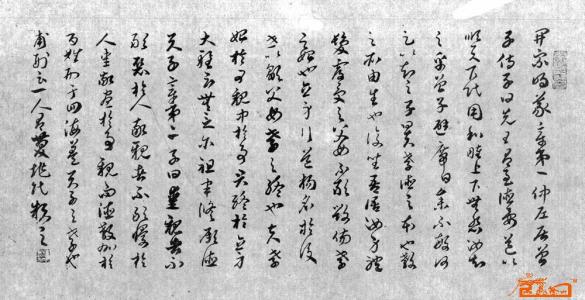 開宗明義章第一仲尼居曾
子侍子曰先王有至德要道以
順天下民用和睦上下無怨汝知
之乎曾子避席曰參不敏何
足以知之子曰夫孝德之本也教
之所由生也復坐吾語汝身體
髮膚受之父母不敢毀傷孝
之始也立身行道揚名於後
世以顯父母孝之終也夫孝
始於事親中於事君終於立身
大雅云無念爾祖聿脩厥德
天子章第二子曰愛親者不
敢惡於人敬親者不敢慢於
人愛敬盡於事親而德教加於
百姓刑于四海蓋天子之孝也
甫刑云一人有慶兆民賴之